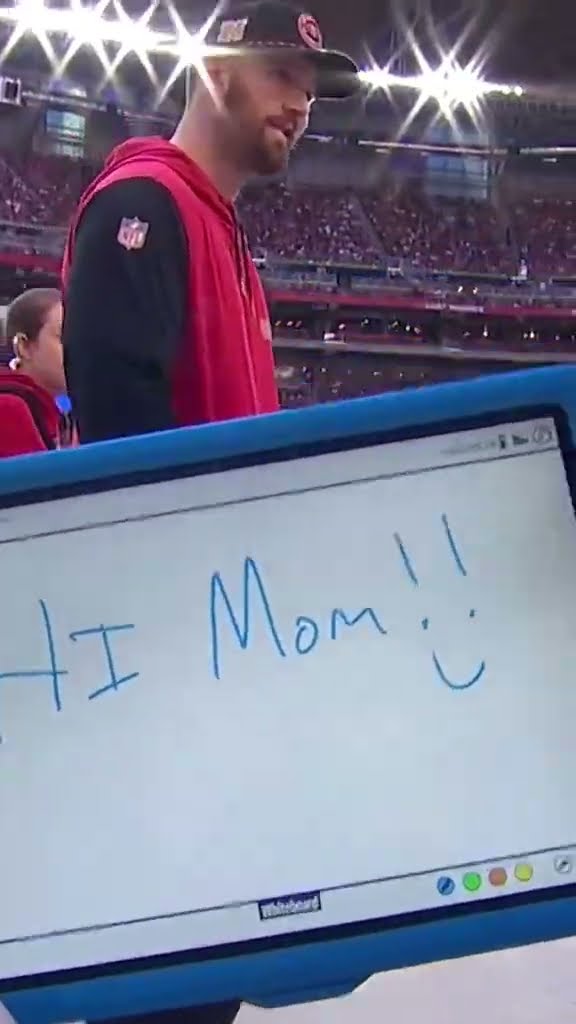 NFL
HI Mom!!
Whiteboard